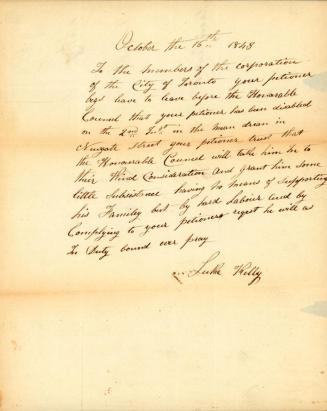 October the 16th 1848
To the members of the corporation
of the City of Toronto your petioner
begs leave to leave before the Honorable
Counsel that your petioner has been disabled
on the 2nd Inst in the mean drean in
Nugate Street your petioner trust that
the Honourable Counsel will take him to
their Kind Consideration And grant him Some
little Subsistence having no means of Supporting
his Family but by hard Labour and by
Complying to your petioners reqest he will as
In Duty bound ever pray
Luke Kelly